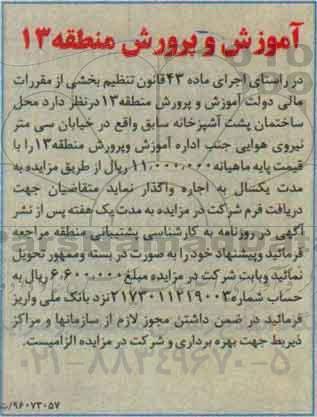 آموزش و پرورش منطقه ۱۳
در راستای اجرای ماده ۴۳ قانون تنظیم بخشی از مقررات
مالی دولت آموزش و پرورش منطقه ۱۳ در نظر دارد محل
ساختمان پشت آشپزخانه سابق واقع در خیابان سی متر
نیروی هوایی جنب اداره آموزش وپرورش منطقه ۱۳ را با
قیمت پایه ماهیانه ۱۱،۰۰۰،۰۰۰ ریال از طریق مزایده به
مدت یکسال به اجاره واگذار نماید متقاضیان جهت
دریافت فرم شرکت در مزایده به مدت یک هفته پس از نشر
آگهی در روزنامه به کارشناسی پشتیبانی منطقه مراجعه
فرمائید وپیشنهاد خود را به صورت در بسته وممهور تحویل
نمائید وبابت شرکت در مزایده مبلغ ۶،۶۰۰،۰۰۰ ریال به
حساب شماره ۲۱۷۳۰۱۱۲۱۹۰۰۳ نزد بانک ملی واریز
فرمائید در ضمن داشتن مجوز لازم از سازمانها و مراکز
ذیربط جهت بهره برداری و شرکت در مزایده الزامیست.
۰۲۱-۸۸۳۴۹۶۷۰-۵
۹۶۰۷۳۰۵۷/ت